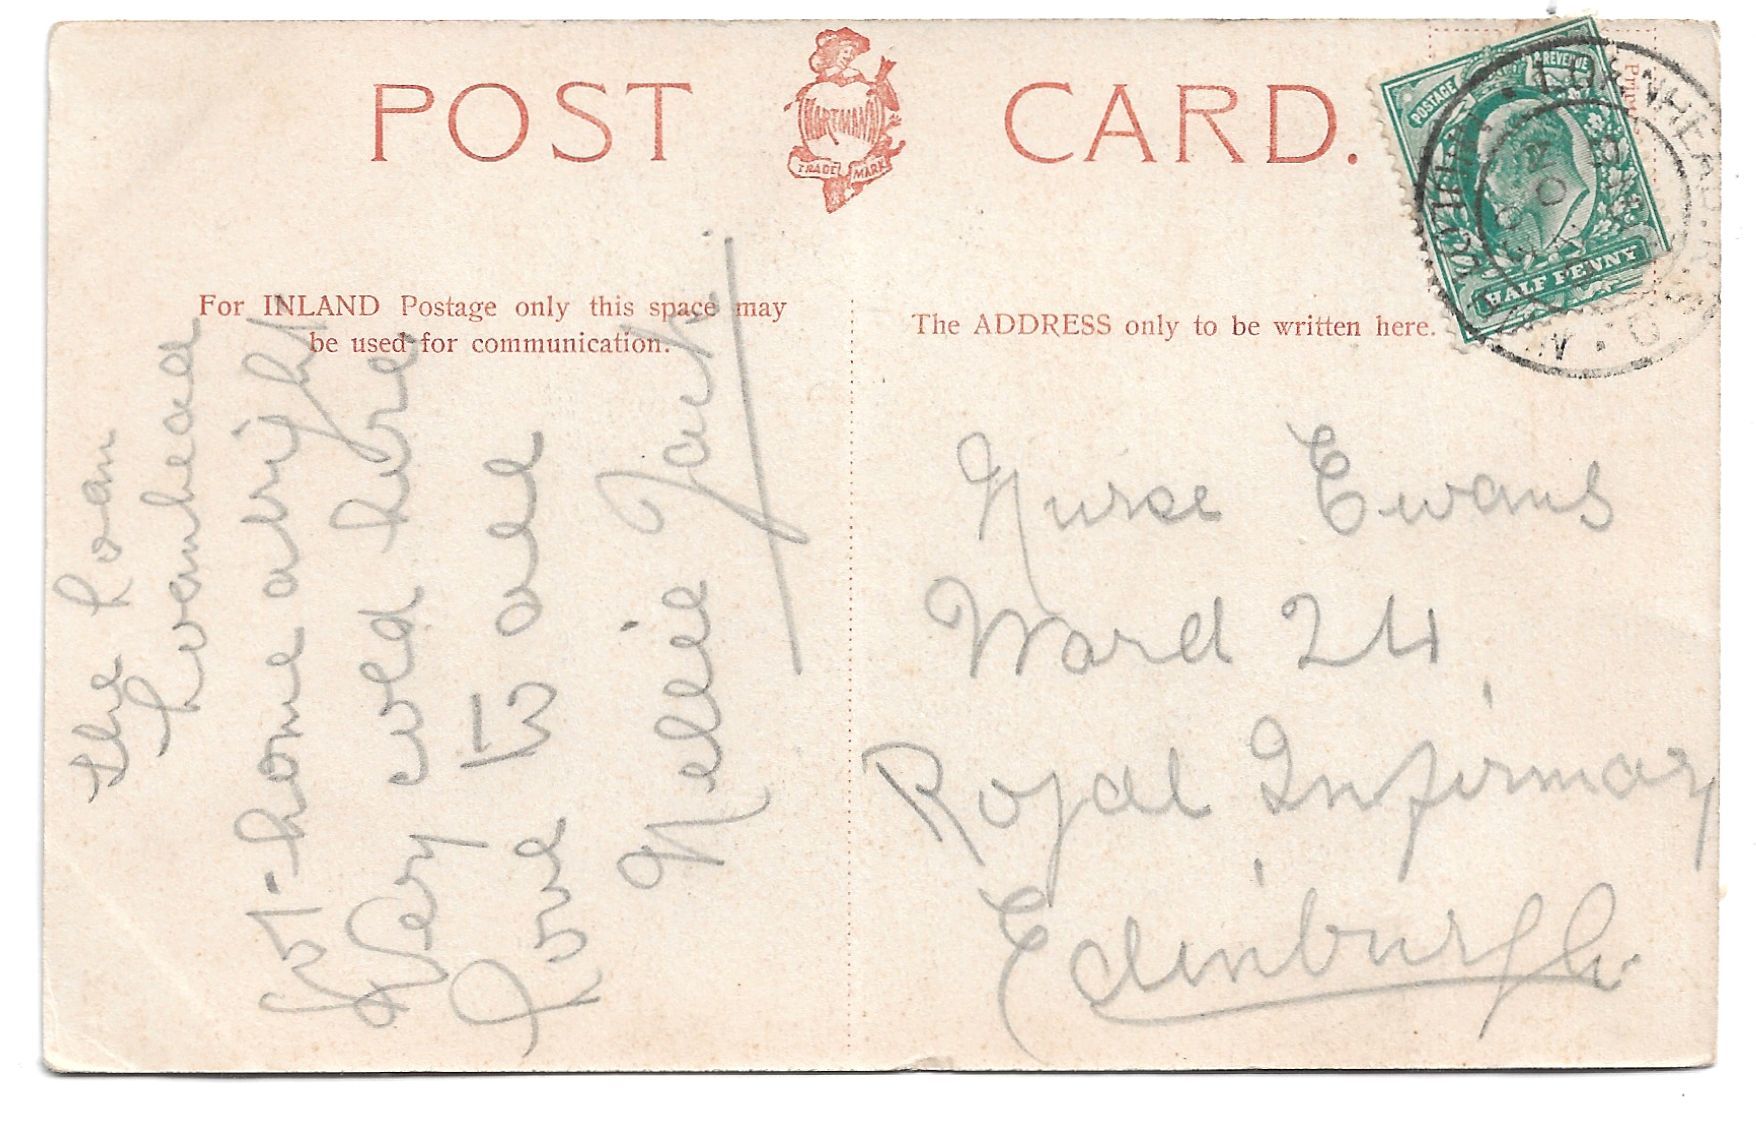 POST CARD.
HARTMANN
TRADE MARK
POSTAGE REVENUE
HALF PENNY
LOANHEAD
For INLAND Postage only this space may
be used for communication.
The ADDRESS only to be written here.
The Loan
Loanhead
home alright
Very cold here
love to all
Nellie Jack
Nurse Evans
Ward 24
Royal Infirmary
Edinburgh